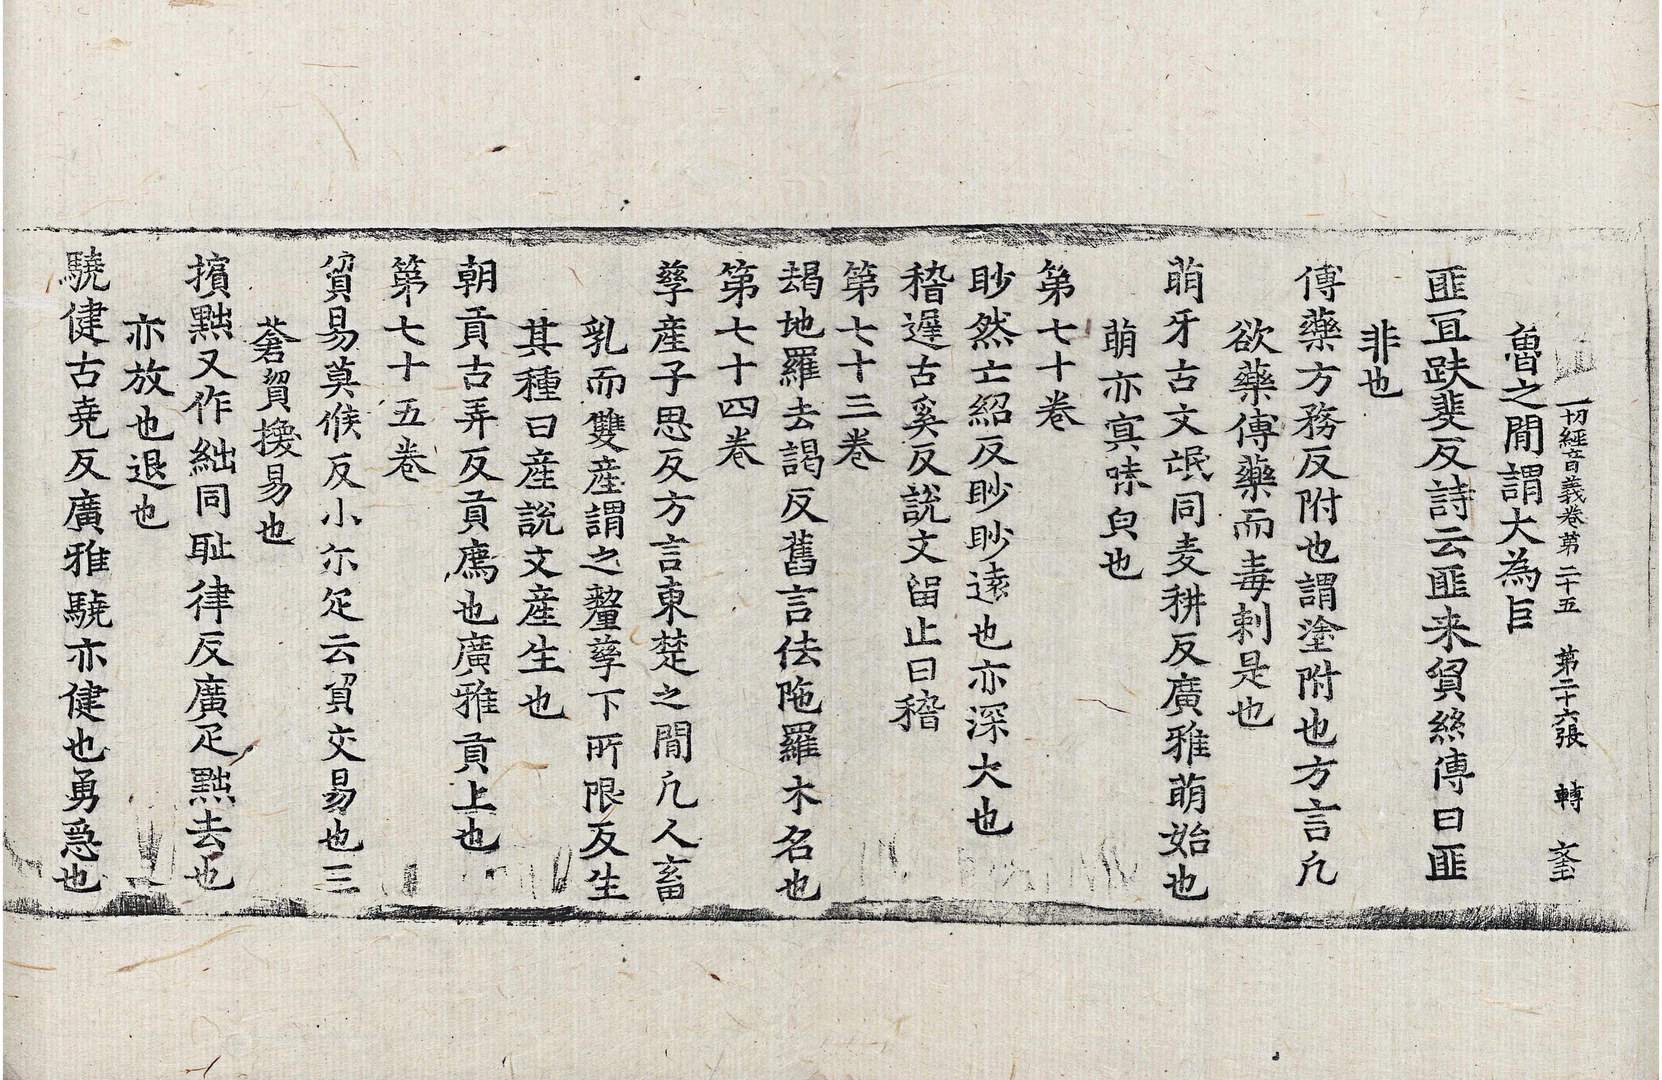 一切經音義卷第二十五 第二十六張 轉
魯之閒謂大為巨
匪宜趺斐反詩云匪来貿絲傳曰匪
非也
傅藥方務反附也謂塗附也方言凡
欲藥傅藥而毒刺是也
萌牙古文氓同麦耕反廣雅萌始也
萌亦冥昧皃也
第七十卷
眇然亡紹反眇眇逺也亦深大也
稽遲古奚反說文留止曰稽
第七十三卷
朅地羅去謁反舊言佉陁羅木名也
第七十四卷
孳産子思反方言東楚之閒凡人畜
乳而雙産謂之釐孳下所限反生
其種曰産說文産生也
朝貢古弄反貢廌也廣雅貢上也
第七十五卷
貿易莫候反小尓疋云貿交易也三
蒼貿換易也
擯黜又作絀同耻律反廣疋黜去也
亦放也退也
驍健古堯反廣雅驍亦健也勇急也